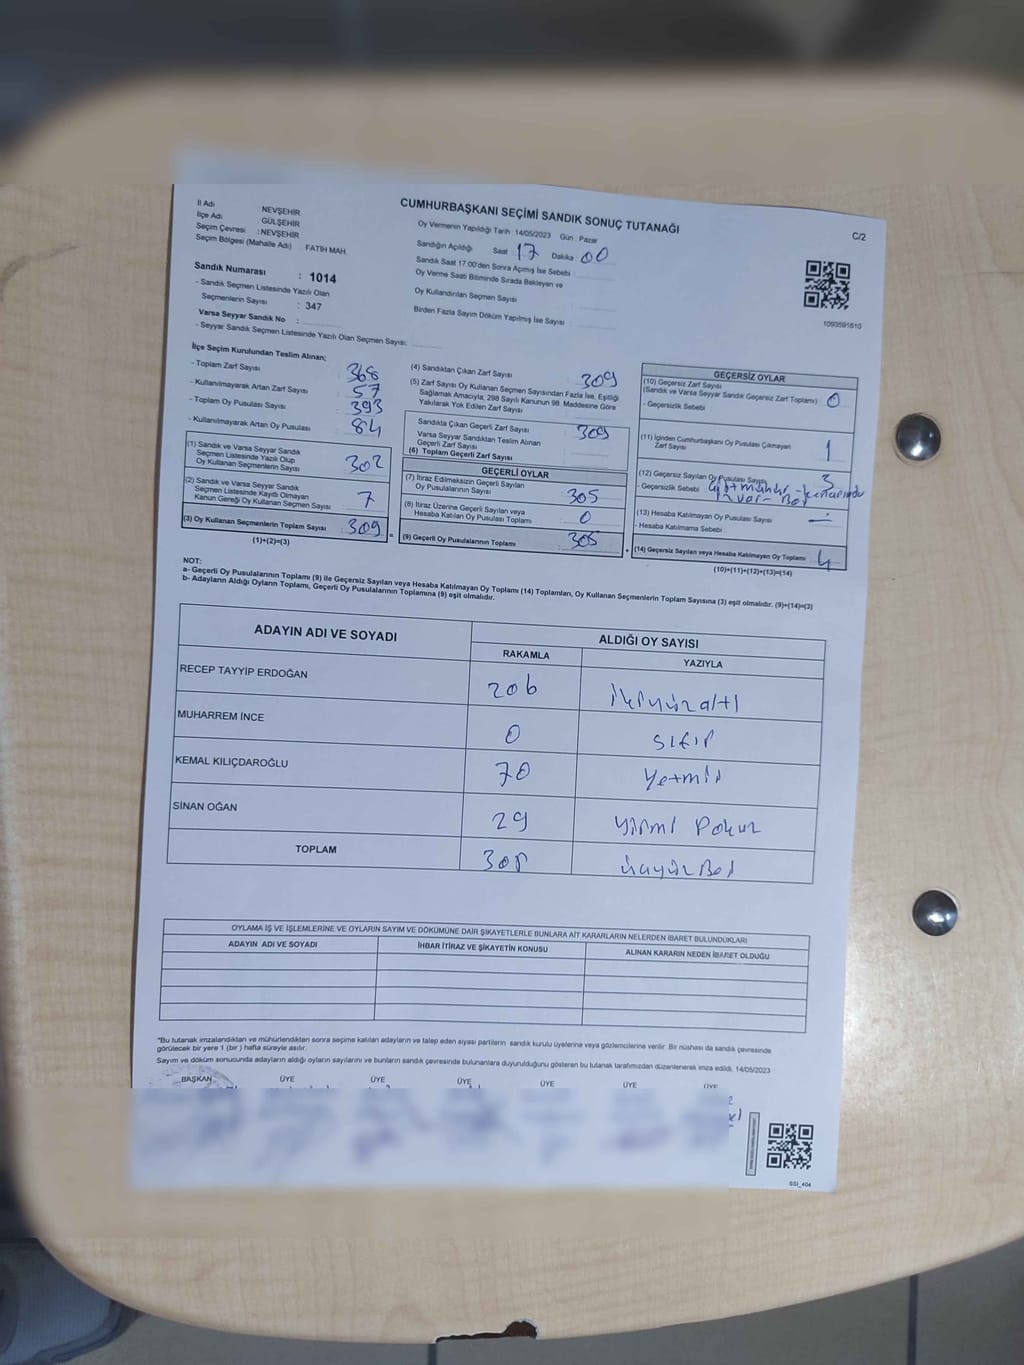 CUMHURBAŞKANI SEÇİMİ SANDIK SONUÇ TUTANAĞI
C/2
İl Adı : NEVŞEHİR
İlçe Adı : GÜLŞEHİR
Seçim Çevresi : NEVŞEHİR
Seçim Bölgesi (Mahalle Adı) : FATİH MAH.
Oy Vermenin Yapıldığı Tarih : 14/05/2023 Gün : Pazar
Sandığın Açıldığı Saat 17 Dakika 00
Sandık Saat 17:00'den Sonra Açılmış İse Sebebi :
Oy Verme Saati Bitiminde Sırada Bekleyen ve
Oy Kullandırılan Seçmen Sayısı :
Birden Fazla Sayım Döküm Yapılmış İse Sayısı :
1093591610
Sandık Numarası : 1014
- Sandık Seçmen Listesinde Yazılı Olan
Seçmenlerin Sayısı : 347
Varsa Seyyar Sandık No :
- Seyyar Sandık Seçmen Listesinde Yazılı Olan Seçmen Sayısı:
İlçe Seçim Kurulundan Teslim Alınan;
- Toplam Zarf Sayısı 368
- Kullanılmayarak Artan Zarf Sayısı 57
- Toplam Oy Pusulası Sayısı 393
- Kullanılmayarak Artan Oy Pusulası 84
(1) Sandık ve Varsa Seyyar Sandık
Seçmen Listesinde Yazılı Olup
Oy Kullanan Seçmenlerin Sayısı 302
(2) Sandık ve Varsa Seyyar Sandık
Seçmen Listesinde Kayıtlı Olmayan
Kanun Gereği Oy Kullanan Seçmen Sayısı 7
(3) Oy Kullanan Seçmenlerin Toplam Sayısı 309
(1)+(2)=(3)
(4) Sandıktan Çıkan Zarf Sayısı 309
(5) Zarf Sayısı Oy Kullanan Seçmen Sayısından Fazla İse, Eşitliği
Sağlamak Amacıyla; 298 Sayılı Kanunun 98. Maddesine Göre
Yakılarak Yok Edilen Zarf Sayısı :
Sandıkta Çıkan Geçerli Zarf Sayısı 309
Varsa Seyyar Sandıktan Teslim Alınan
Geçerli Zarf Sayısı
(6) Toplam Geçerli Zarf Sayısı
GEÇERLİ OYLAR
(7) İtiraz Edilmeksizin Geçerli Sayılan
Oy Pusulalarının Sayısı 305
(8) İtiraz Üzerine Geçerli Sayılan veya
Hesaba Katılan Oy Pusulası Toplamı 0
= (9) Geçerli Oy Pusulalarının Toplamı 305
GEÇERSİZ OYLAR
(10) Geçersiz Zarf Sayısı
(Sandık ve Varsa Seyyar Sandık Geçersiz Zarf Toplamı) 0
- Geçersizlik Sebebi
(11) İçinden Cumhurbaşkanı Oy Pusulası Çıkmayan
Zarf Sayısı 1
(12) Geçersiz Sayılan Oy Pusulası Sayısı 3
- Geçersizlik Sebebi Çift mühür - kenarında
(13) Hesaba Katılmayan Oy Pusulası Sayısı —
- Hesaba Katılmama Sebebi :
+ (14) Geçersiz Sayılan veya Hesaba Katılmayan Oy Toplamı 4
(10)+(11)+(12)+(13)=(14)
NOT:
a- Geçerli Oy Pusulalarının Toplamı (9) ile Geçersiz Sayılan veya Hesaba Katılmayan Oy Toplamı (14) Toplamları, Oy Kullanan Seçmenlerin Toplam Sayısına (3) eşit olmalıdır. (9)+(14)=(3)
b- Adayların Aldığı Oyların Toplamı, Geçerli Oy Pusulalarının Toplamına (9) eşit olmalıdır.
ADAYIN ADI VE SOYADI
ALDIĞI OY SAYISI
RAKAMLA YAZIYLA
RECEP TAYYİP ERDOĞAN 206 ikiyüz altı
MUHARREM İNCE 0 sıfır
KEMAL KILIÇDAROĞLU 70 Yetmiş
SİNAN OĞAN 29 yirmi Dokuz
TOPLAM 305 üçyüz Beş
OYLAMA İŞ VE İŞLEMLERİNE VE OYLARIN SAYIM VE DÖKÜMÜNE DAİR ŞİKAYETLERLE BUNLARA AİT KARARLARIN NELERDEN İBARET BULUNDUKLARI
ADAYIN ADI VE SOYADI İHBAR İTİRAZ VE ŞİKAYETİN KONUSU ALINAN KARARIN NEDEN İBARET OLDUĞU
*Bu tutanak imzalandıktan ve mühürlendikten sonra seçime katılan adayların ve talep eden siyasi partilerin sandık kurulu üyelerine veya gözlemcilerine verilir. Bir nüshası da sandık çevresinde
görülecek bir yere 1 (bir) hafta süreyle asılır.
Sayım ve döküm sonucunda adayların aldığı oyların sayılarını ve bunların sandık çevresinde bulunanlara duyurulduğunu gösteren bu tutanak tarafımızdan düzenlenerek imza edildi. 14/05/2023
BAŞKAN ÜYE ÜYE ÜYE ÜYE ÜYE ÜYE
SSI_404